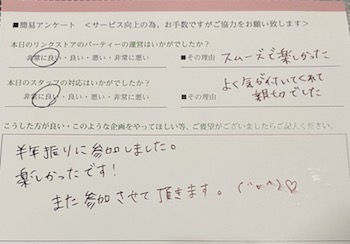 ■簡易アンケート　＜サービス向上の為、お手数ですがご協力をお願い致します＞
本日のリンクストアのパーティーの運営はいかがでしたか?
非常に良い・良い・悪い・非常に悪い　■その理由　スムーズで楽しかった
本日のスタッフの対応はいかがでしたか?
非常に良い・良い・悪い・非常に悪い　■その理由　よく気が付いてくれて
親切でした
こうした方が良い・このような企画をやってほしい等、ご要望がございましたらご記入ください。
半年振りに参加しました。
楽しかったです!
また参加させて頂きます。(^o^)♡